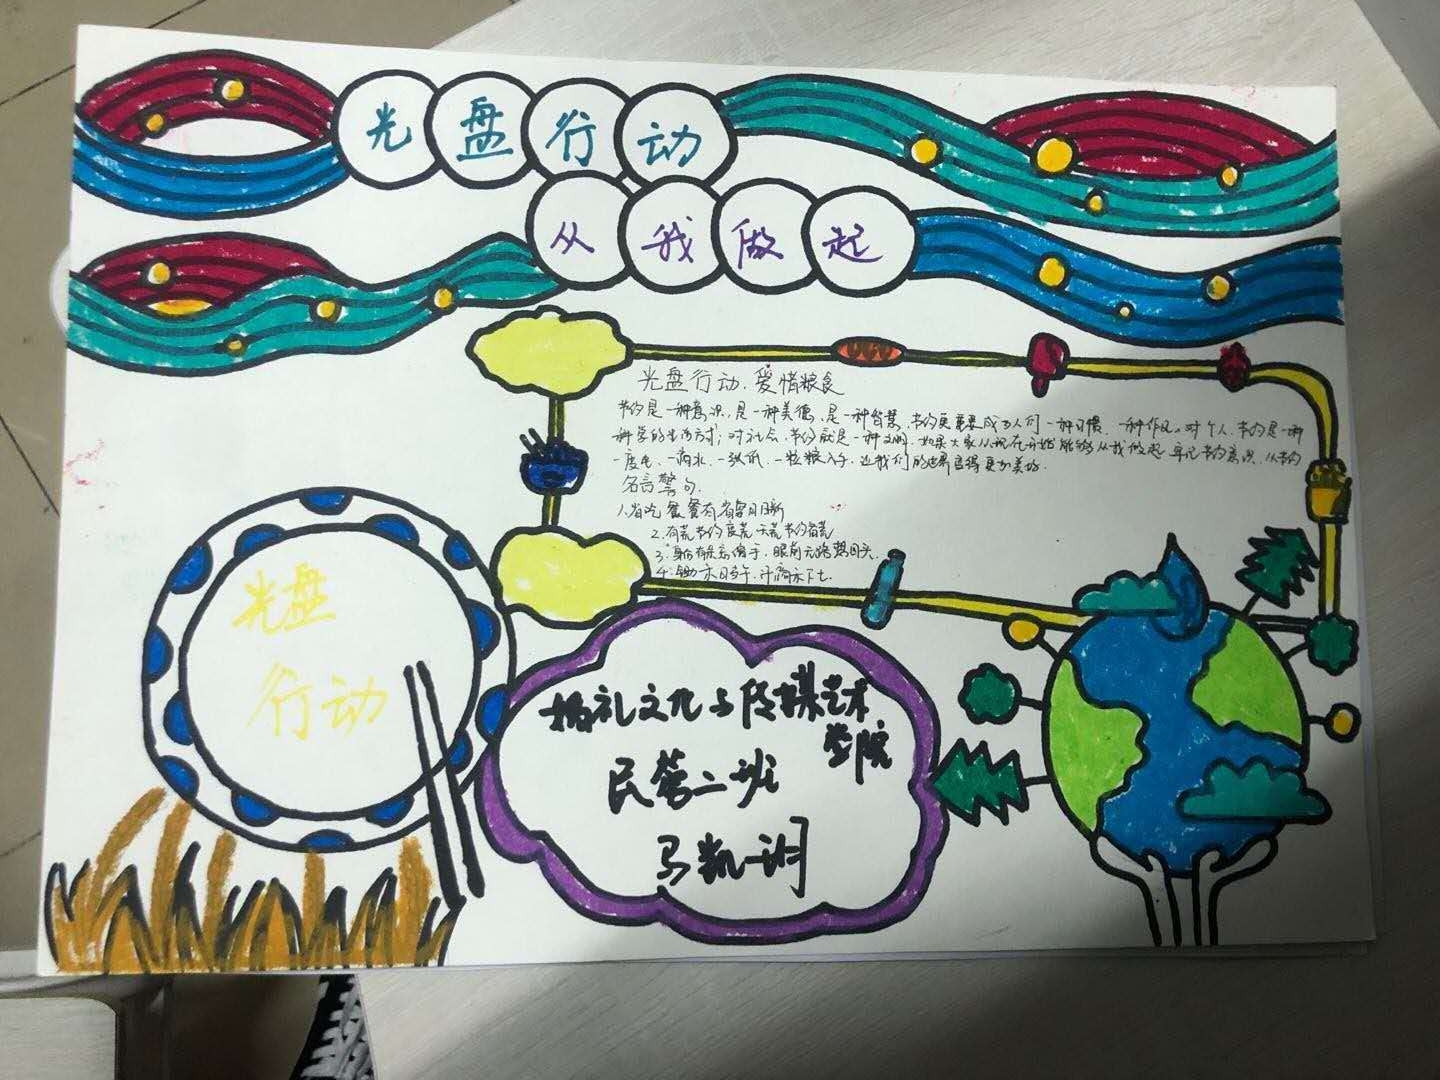 光盘行动
从我做起
光盘行动.爱惜粮食
节约是一种意识,是一种美德,是一种智慧,节约更需要成为人们一种习惯,一种作风。对个人,节约是一种
科学的生活方式;对社会,节约就是一种文明.如果大家从现在开始能够从我做起,牢记节约意识,从节约
一度电、一滴水、一张纸、一粒粮入手,让我们的世界变得更加美好.
名言警句.
2.有荒节约度荒 无荒节约备荒
3.身后有余忘缩手,眼前无路想回头.
4.锄禾日当午,汗滴禾下土.
光盘
行动
婚礼文化与传媒艺术
学院
民营二班